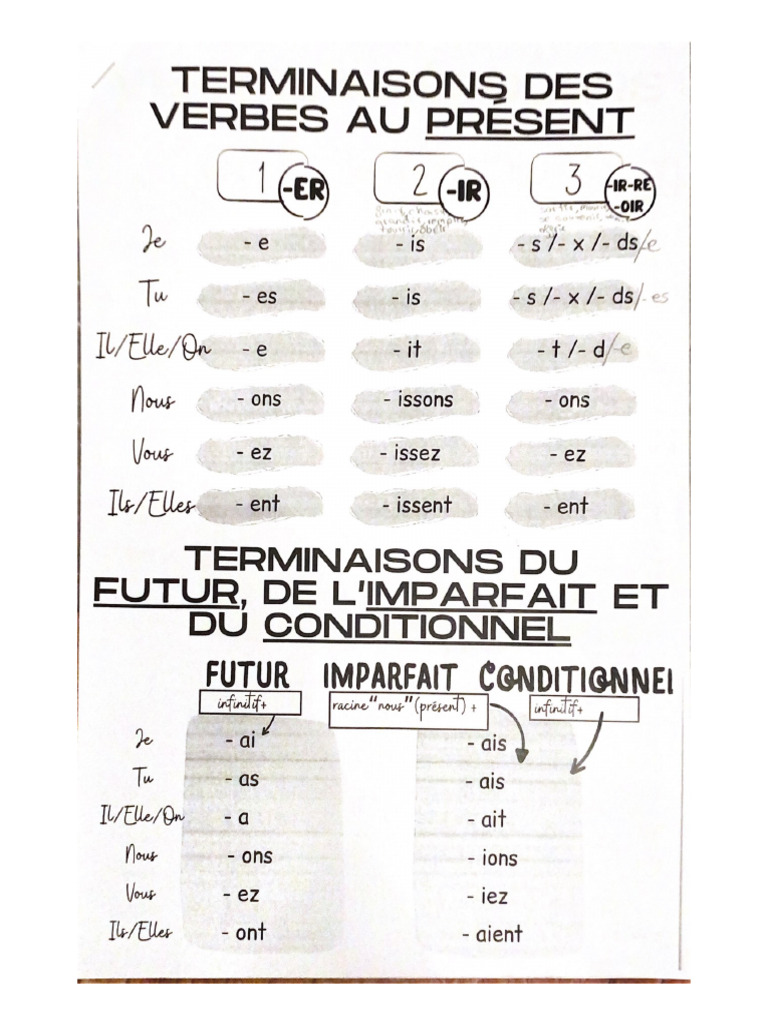 TERMINAISONS DES
VERBES AU PRÉSENT
1 -ER 2 -IR 3 -IR-RE
-OIR
Je - e - is - s /- x /- ds/-e
Tu - es - is - s /- x /- ds/- es
Il/Elle/On - e - it - t /- d/-e
Nous - ons - issons - ons
Vous - ez - issez - ez
Ils/Elles - ent - issent - ent
TERMINAISONS DU
FUTUR, DE L'IMPARFAIT ET
DU CONDITIONNEL
FUTUR IMPARFAIT CONDITIONNEL
infinitif+ racine "nous" (présent) + infinitif+
Je - ai - ais
Tu - as - ais
Il/Elle/On - a - ait
Nous - ons - ions
Vous - ez - iez
Ils/Elles - ont - aient